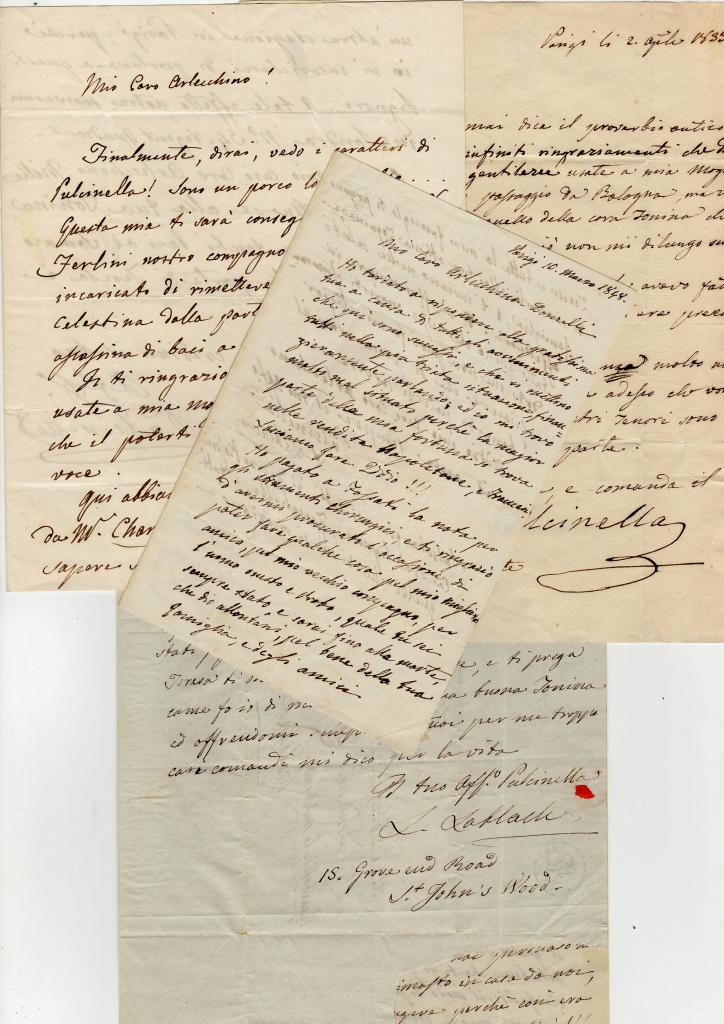 Mio Caro Arlecchino!
Finalmente, dirai, vedo i caratteri di
Pulcinella! Sono un porco lo
Questa mia ti sarà conseg
Ferlini nostro compagno
incaricato di rimettere
Celestina dalla part
di baci a
Io ti ringrazio
usate a mia mo
che il poterti
voce.
Qui abbia
da Mr. Char
sapere s
Parigi li 2. aprile 183
mai dice il proverbio antico
infiniti ringraziamenti che d
gentilezze usate a mia mog
passaggio da Bologna, ma
quello della cara Tonina ch
ciò non mi dilungo su
avevo fat
ere prez
mia molto
e adesso che vo
tri Tenori sono
parte.
e comanda il
lcinella
te
Parigi 10. Marzo 1848.
Mio Caro Arlecchino Donzelli
Ho tardato a rispondere alla gratissima
tua a causa di tutti gli avvenimenti
che qui sono successi, e che ci mettono
tutti nella più trista situazione finan=
zieramente parlando; ed io mi trovo
molto mal situato perchè la maggior
parte della mia fortuna si trova
nelle rendite Napoletane, e francesi
Lasciamo fare Iddio!!!
Ho pagato a la nota per
gli strumenti chirurgici e ti ringrazio
di avermi procurato l'occasione di
poter fare qualche cosa pel mio
amico, pel mio vecchio compagno, per
l'uomo onesto e probo, quale tu sei
sempre stato, e sarai fino alla morte,
che dio allontani, pel bene della tua
famiglia, e degli amici
stati, p e, e ti prega
Teresa ti m na buona Tonina
come fo io di n noi per me troppo
ed offrendomi semp
cari comandi mi dico per la vita
Il tuo Affo. Pulcinella
L. Lablache
15. Grove end Road
St. John's Wood.
imasto in casa da voi,
perchè com'era
!!!